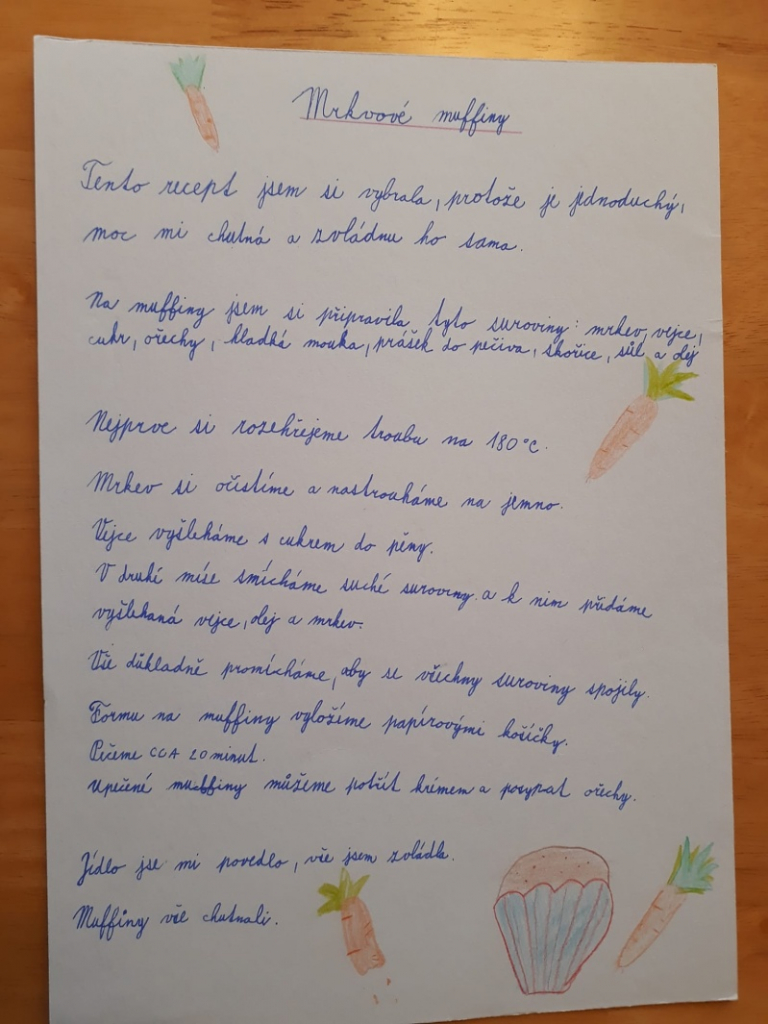 Mrkvové muffiny
Tento recept jsem si vybrala, protože je jednoduchý,
moc mi chutná a zvládnu ho sama.
Na muffiny jsem si připravila tyto suroviny: mrkev, vejce,
cukr, ořechy, hladká mouka, prášek do pečiva, skořice, sůl a olej
Nejprve si rozehřejeme troubu na 180°C.
Mrkev si očistíme a nastrouháme na jemno.
Vejce vyšleháme s cukrem do pěny.
V druhé míse smícháme suché suroviny a k nim přidáme
vyšlehaná vejce, olej a mrkev.
Vše důkladně promícháme, aby se všechny suroviny spojily.
Formu na muffiny vyložíme papírovými košíčky.
Pečeme CCA 20 minut.
Upečené muffiny můžeme potřít krémem a posypat ořechy.
Jídlo jse mi povedlo, vše jsem zvládla.
Muffiny chutnali.